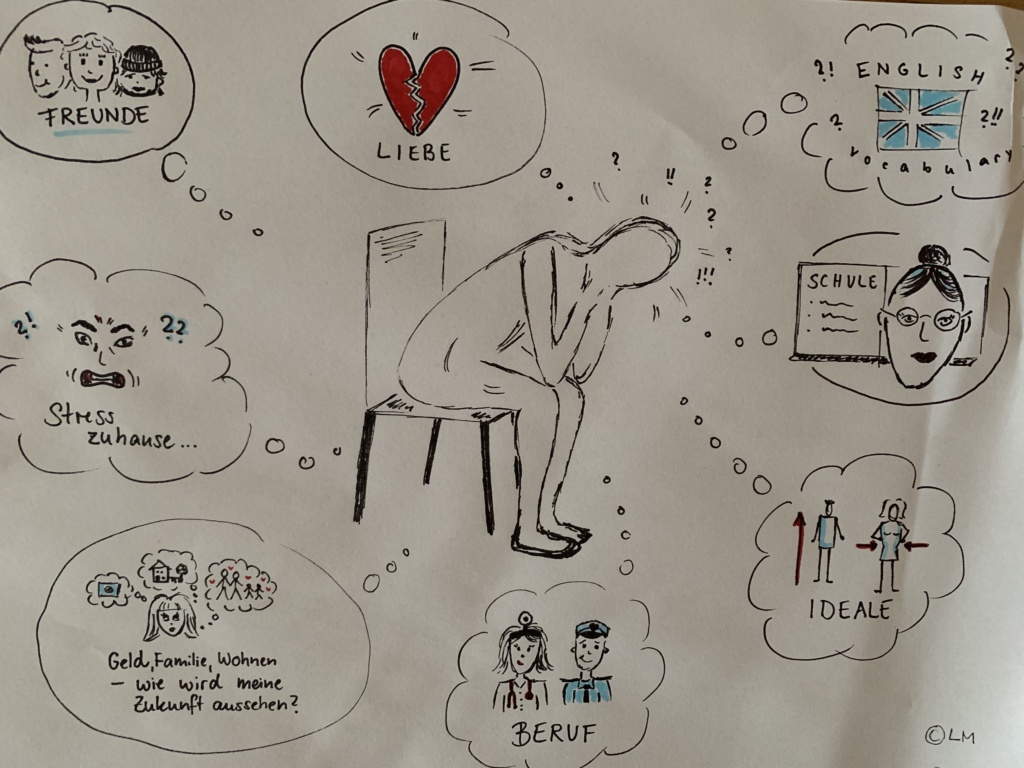 FREUNDE
LIEBE
?! ENGLISH ??
? ?!!
vocabulary
? !! ? ? ? !!!
SCHULE
?! ??
Stress
zuhause...
IDEALE
Geld, Familie, Wohnen
– wie wird meine
Zukunft aussehen?
BERUF
©LM